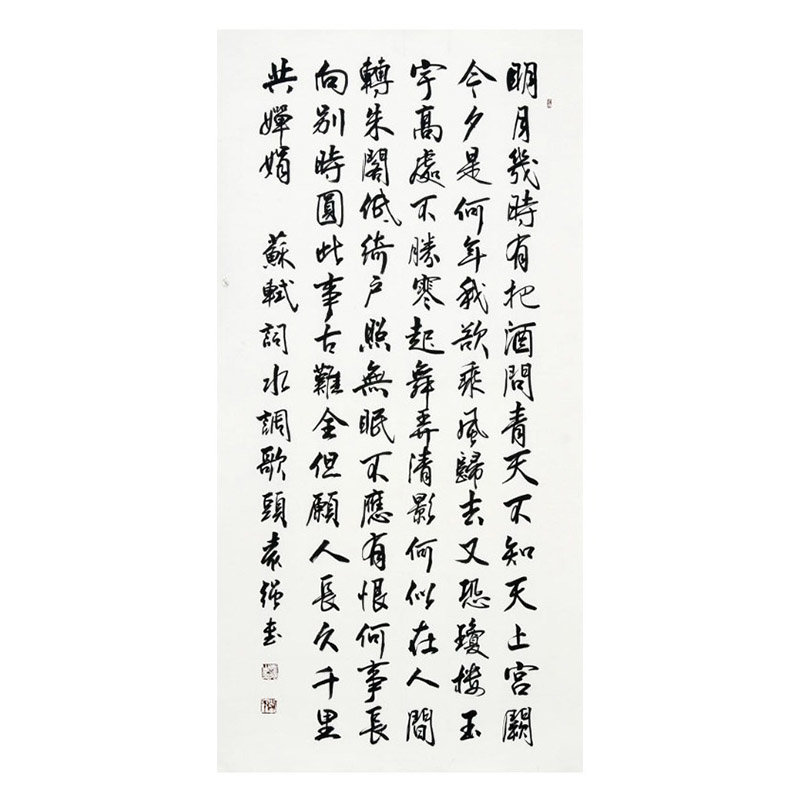 明月幾時有把酒問青天不知天上宮闕
今夕是何年我欲乘風歸去又恐瓊樓玉
宇高處不勝寒起舞弄清影何似在人間
轉朱閣低綺户照無眠不應有恨何事長
向别時圓此事古難全但願人長久千里
共嬋娟 蘇軾詞水調歌頭袁强書